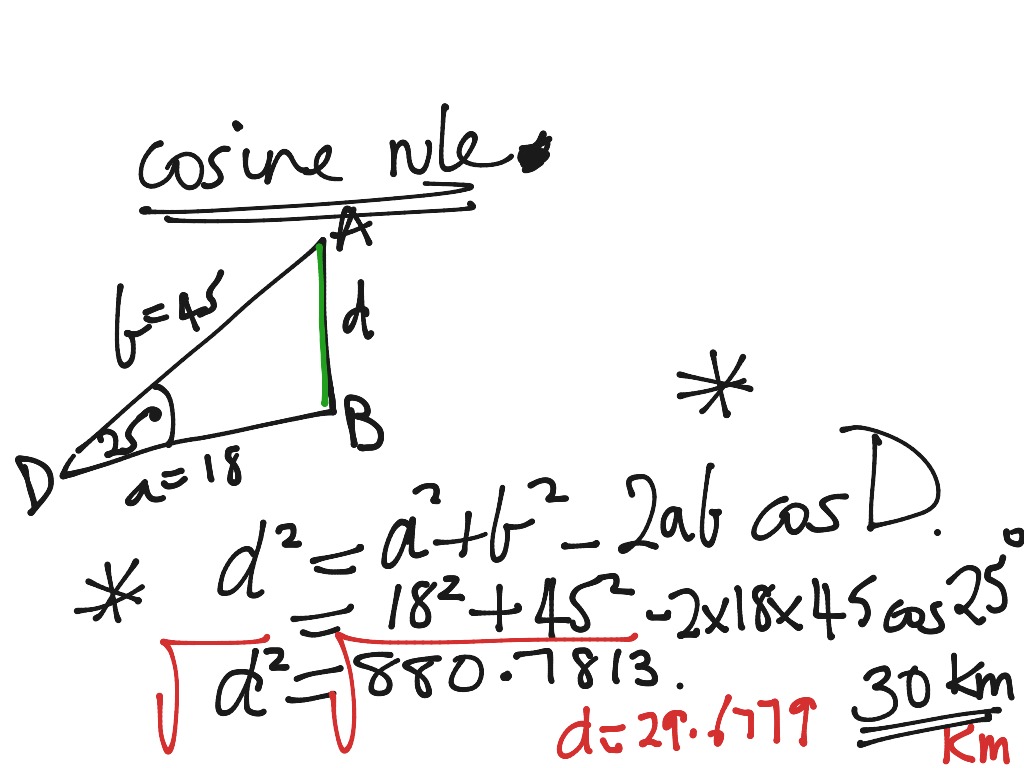 cosine rule
A
b = 45
d
25°
B
D
a = 18
* 
d² = a² + b² - 2ab cos D.
* = 18² + 45² - 2x18x45 cos 25°
√d² = √880.7813.
30 km
d = 29.6779 km